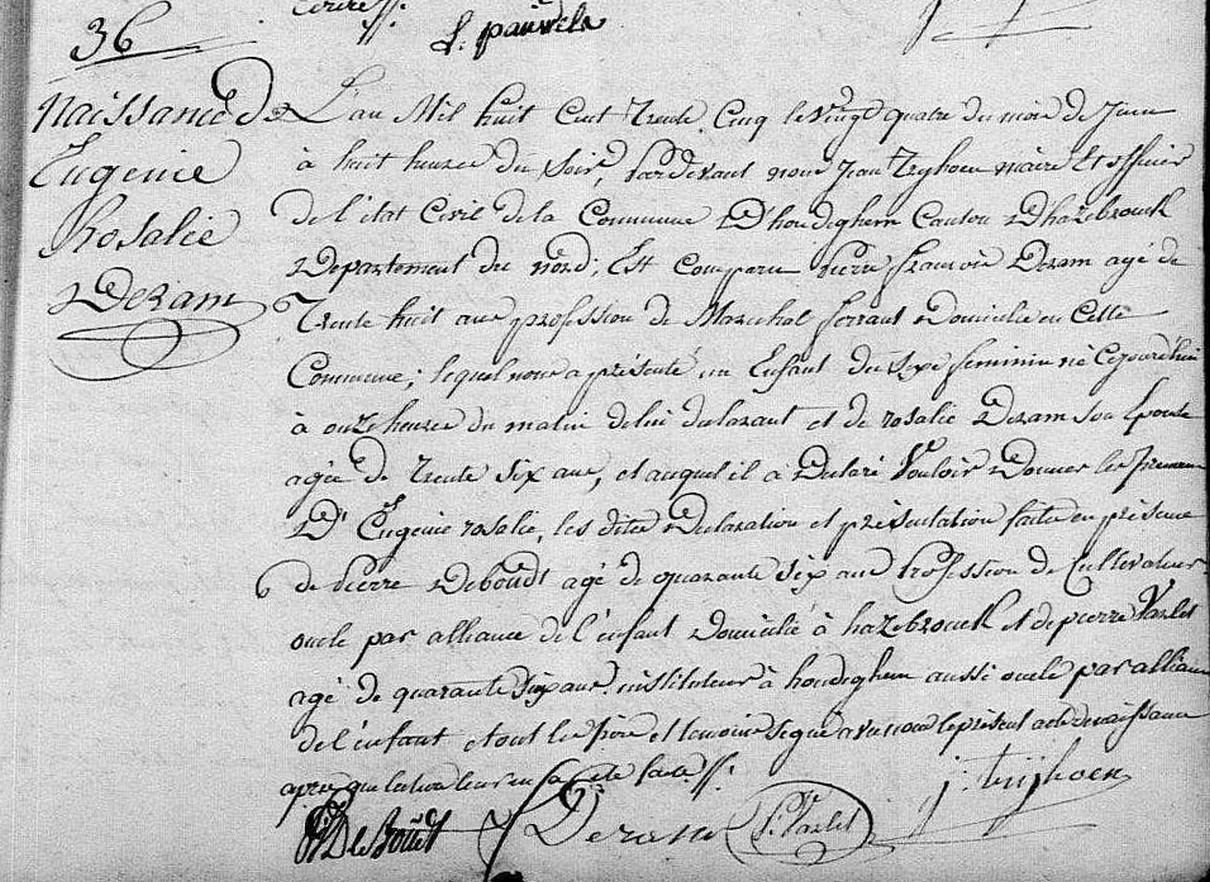 36
P. pauwels
Naissance de
Eugenie
Rosalie
Deram
L'an Mil huit Cent Trente Cinq le vingt quatre du mois de Juin
à huit heures du Soir, Pardevant nous Jean Tryhoen maire Et officier
de l'état Civil de la Commune D'hondeghem Canton D'hazebrouck
Departement du nord; Est comparu Pierre francois Deram agé de
Trente huit ans profession de Marechal ferrant Domicilié en Cette
Commune; lequel nous a présenté un Enfant du Sexe feminin né Cejourd'hui
à onze heures du matin de lui declarant et de rosalie Deram son Epouse
agée de trente six ans, et auquel il a Declaré Vouloir Donner les prenoms
D'Eugenie rosalie, les dites Declaration et présentation faites en présence
de Pierre Deboudt agé de quarante Six ans Profession de Cultivateur
oncle par alliance de l'enfant Domicilié à hazebrouck et de pierre Varlet
agé de quarante Six ans instituteur à hondeghem aussi oncle par alliance
de l'enfant et ont les père et temoins signé avec nous le présent acte de naissance
après que lecture leur en a été faite
j: trijhoen
DeBoudt Deram P. Varlet